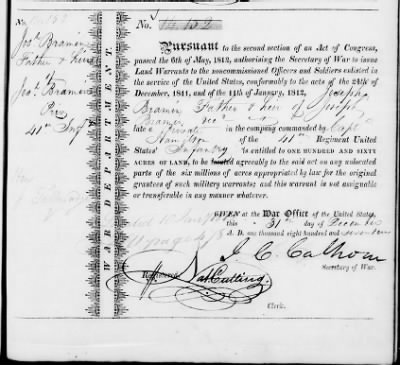 No. 14,152
Jos. Bramin
Father & heir
of
Jos. Bramin
41st Inf
WAR DEPARTMENT.
No. 14,152
Pursuant to the second section of an Act of Congress,
passed the 6th of May, 1812, authorising the Secretary of War to issue
Land Warrants to the noncommissioned Officers and Soldiers enlisted
in the service of the United States, conformably to the acts of the 24th of
December, 1811, and of the 11th of January, 1812, Joseph
Bramin Father & heir of Joseph
Bramin dec'd
late a Private in the company commanded by Capt
of the 41st Regiment United
States' Infantry is entitled to ONE HUNDRED AND SIXTY
ACRES OF LAND, to be located agreeably to the said act on any unlocated
parts of the six millions of acres appropriated by law for the original
grantees of such military warrants; and this warrant is not assignable
or transferable in any manner whatever.
GIVEN at the War Office of the United States,
this 31st day of December
A. D. one thousand eight hundred and seventeen
J. C. Calhoun
Secretary of War.
Nat. Cutting.
Clerk.